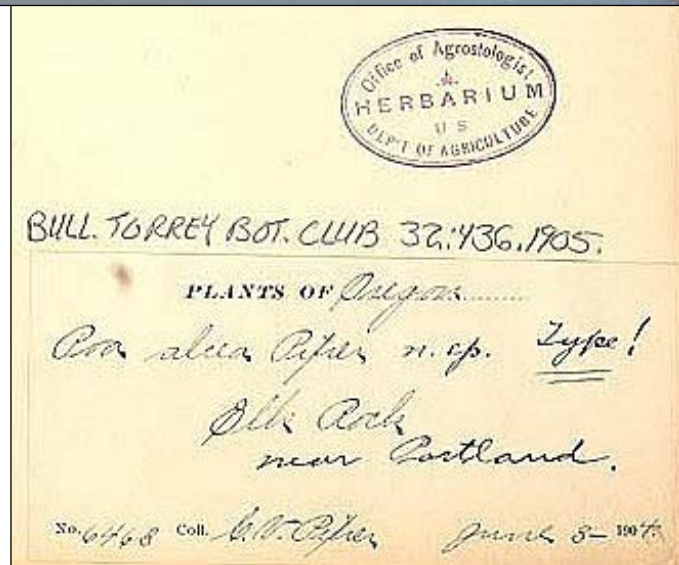 Office of Agrostologist
HERBARIUM
U S
DEP'T OF AGRICULTURE
BULL. TORREY BOT. CLUB 32:436.1905.
PLANTS OF Oregon
Poa alcea Piper n. sp. Type!
Elk Rock
near Portland.
No. 6468 Coll. C.V. Piper June 3- 1904.